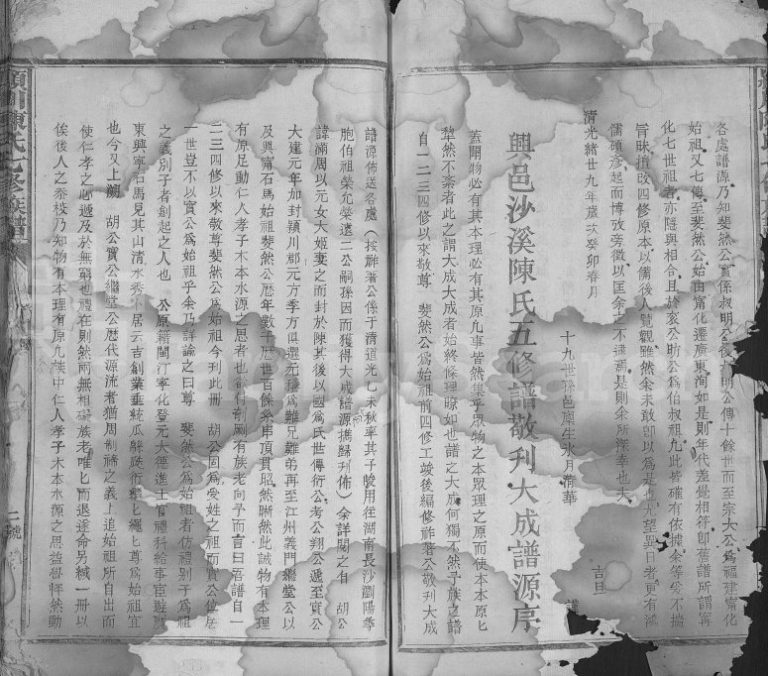 各處譜源乃知斐然公實係叔明公後六朝公傳十餘世而至宗大公為福建甯化
始祖又七傳至斐然公始由甯化遷廣東洵如是則年代差覺相符卽舊譜所謂甯
化七世祖者亦隱與相合且於袞公昉公為伯叔祖九此皆確有依據余等妥不揣
冒昧擅改四修原本以備後人覽觀雖然余未敢卽以為是也尤望異日者更有鴻
儒碩彥起而博攷旁徵以匡余之不逮焉是則余所深幸也夫
清光緒廿九年歲次癸卯春月
吉旦
十九世孫邑廩生水月清華
興邑沙溪陳氏五修譜敬刋大成譜源序
蓋聞物必有其本理必有其原凡事皆然集羣眾物之本眾理之原而使本本原匕
犂然不紊者此之謂大成大成者始終條理瞭如也譜之大成何獨不然予族之譜
自一二三四修以來敬尊 斐然公為始祖前四修工竣後編修祚著公敬刋大成
譜源佈送各處（按祚著公係于清道光乙未秋率其子駿用往湖南長沙瀏陽等
胞伯祖榮允榮遠二公嗣孫因而獲得大成譜源攜歸刋佈）余詳閱之有 胡公
諱滿周以元女大姬妻之而封於陳其後以國為氏世傳衍公考公翔公遞至實公
大建元年加封潁川郡元方季方與選元種為難兄難弟再至江州義門繼堂公以
及興甯石馬始祖斐然公歷年數千歷世百餘糸串頂貫昭然晰然此誠物有本理
有原足動仁人孝子木本水源之思者也欲行刋刷有族老向予而言曰吾譜自一
二三四修以來敬尊斐然公為始祖今刋此冊 胡公固為受姓之祖而實公位居
一世豈不以實公為始祖乎余乃詳論之曰尊 斐然公為始祖者仿禮別子為祖
之義別子者創起之人也 公原籍閩汀寧化登元大德進士官禮科給事宦遊
東興寧石馬見其山清水秀卜居云吉創業垂統瓜緜族衍繩匕尊為始祖宜
也今又上溯 胡公實公繼堂公歷代源流者猶周制禘之義上追始祖所自出而
使仁孝之心遞及於無窮也禮在則然兩無相礙族老唯匕而退遂命另緘一冊以
俟後人之叅校乃知物有本理有原凡族中仁人孝子木本水源之思益譽拜然動
二號
潁川陳氏七修族譜